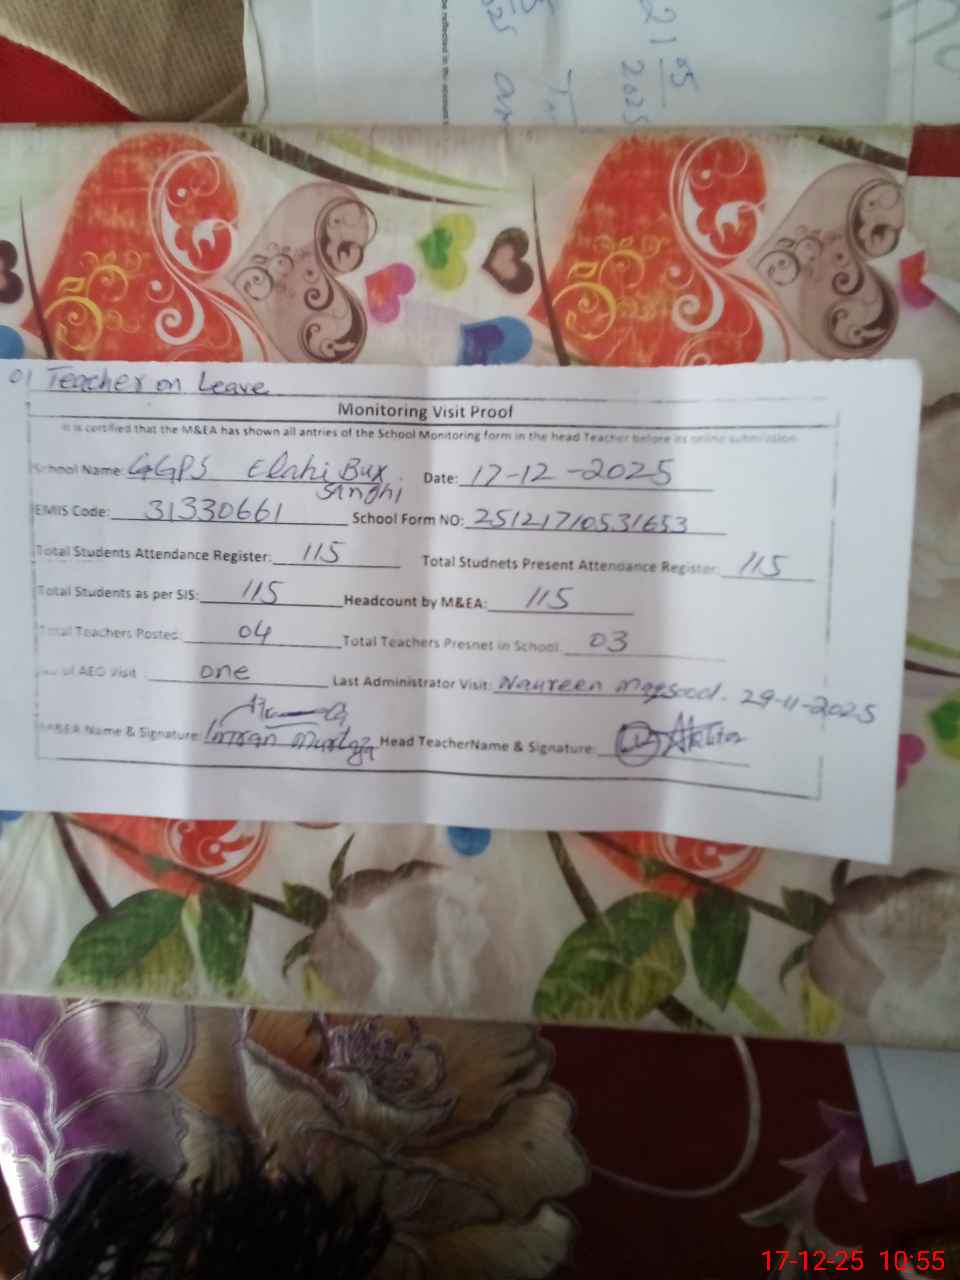 be reflected in the account
21 05
2025
01 Teacher on Leave
Monitoring Visit Proof
It is certified that the M&EA has shown all antries of the School Monitoring form in the head Teacher before its online submission.
School Name: GGPS Elahi Bux Sindhi Date: 17-12-2025
EMIS Code: 31330661 School Form NO: 25121710531653
Total Students Attendance Register: 115 Total Studnets Present Attendance Register: 115
Total Students as per SIS: 115 Headcount by M&EA: 115
Total Teachers Posted: 04 Total Teachers Presnet in School: 03
of AEO Visit one Last Administrator Visit: Naureen Maqsood. 29-11-2025
M&EA Name & Signature: Imran Murtaza Head TeacherName & Signature:
17-12-25 10:55